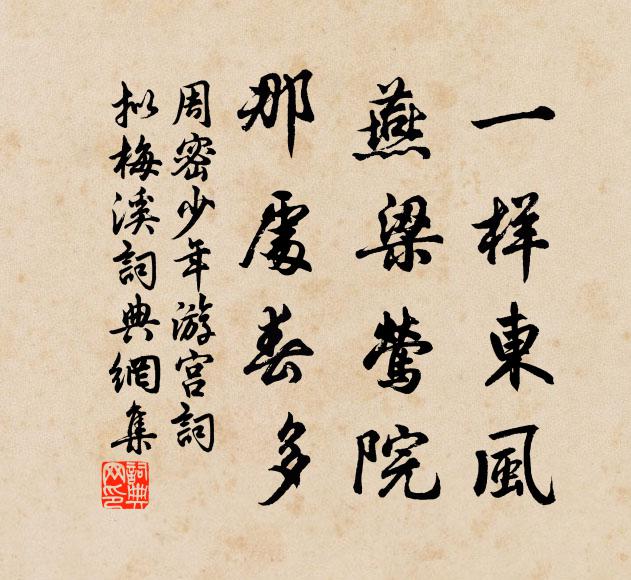 一樣東風
燕梁鶯院
那處春多
周密少年游宮詞
拟梅溪詞典網集
詞典網印